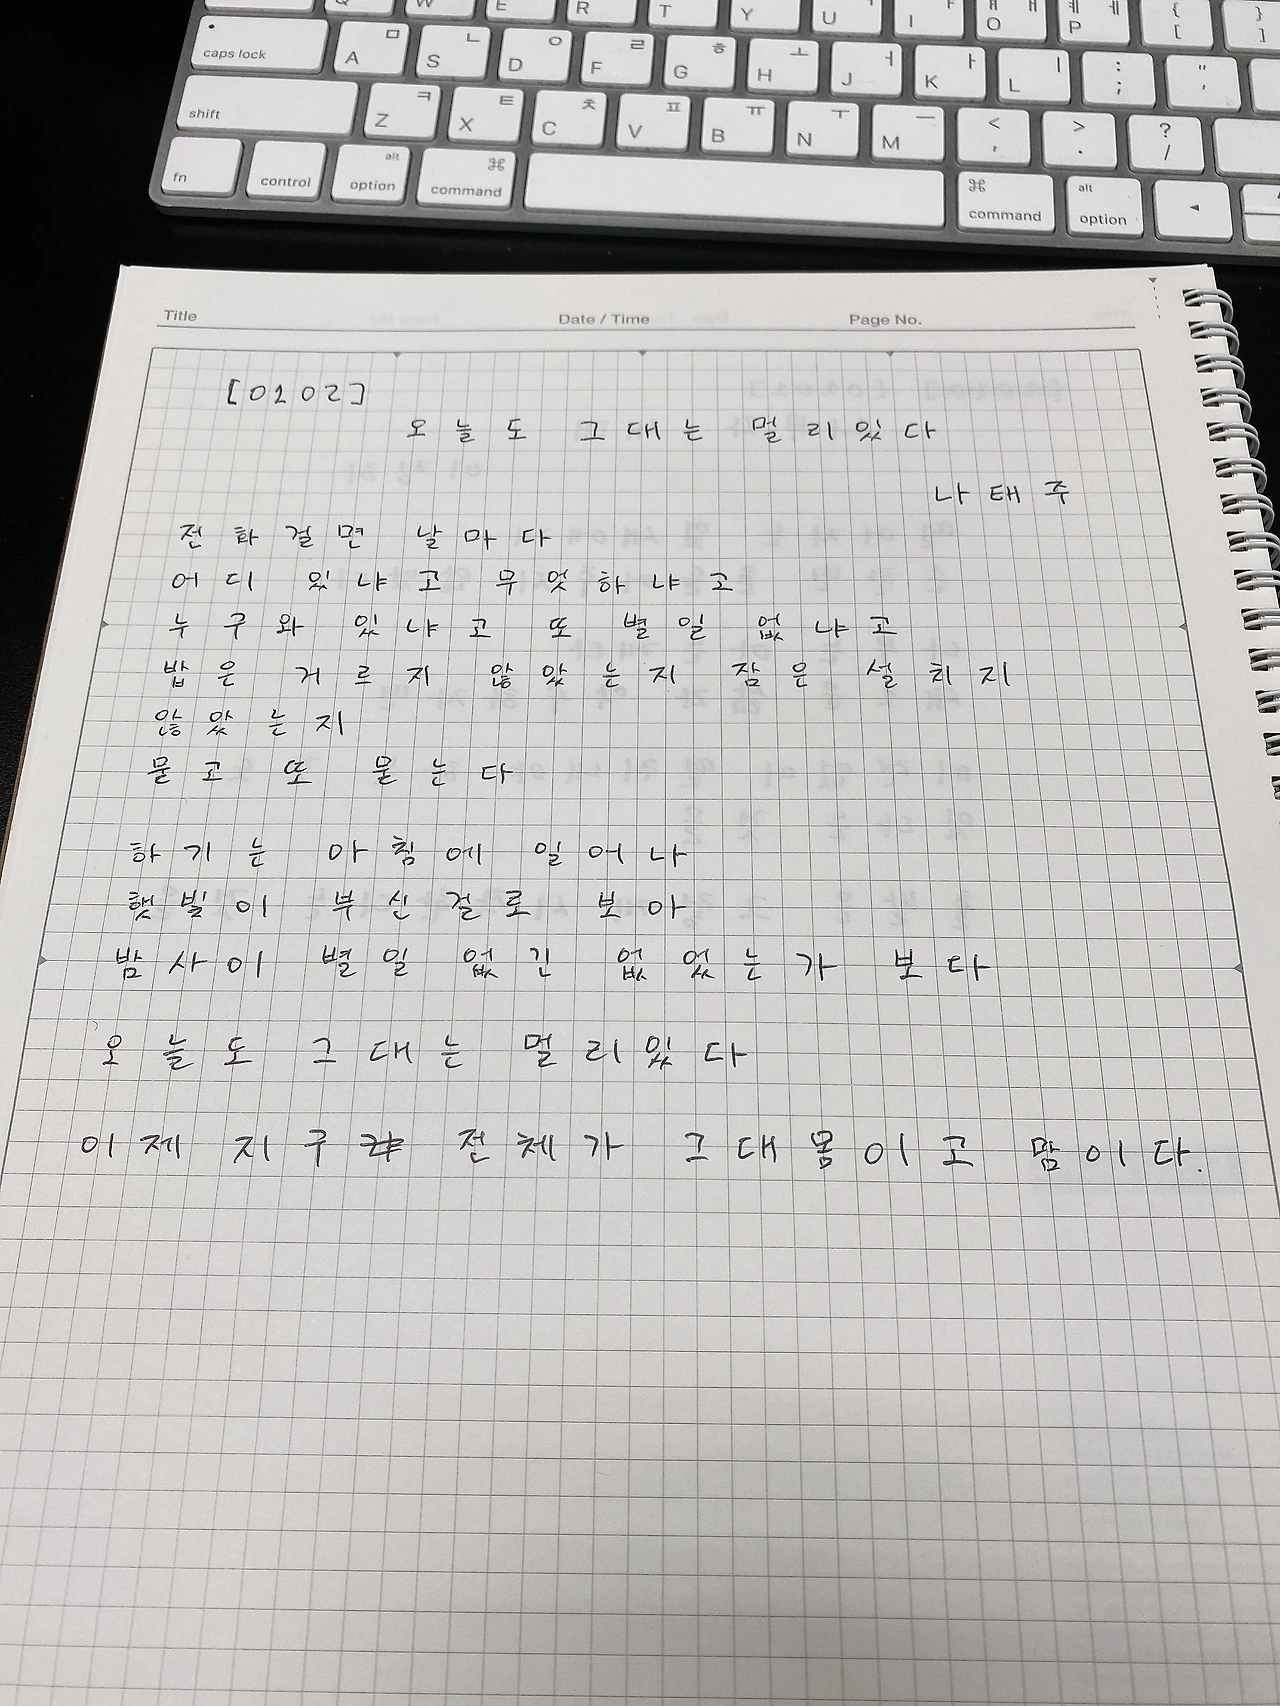 Q W E R T Y U I O P { [ } ]
caps lock A ㅁ S ㄴ D ㅇ F ㄹ G ㅎ H ㅗ J ㅓ K ㅏ L ㅣ : ; " '
shift Z ㅋ X ㅌ C ㅊ V ㅍ B ㅠ N ㅜ M ㅡ < , > . ? /
fn control alt option ⌘ command ⌘ command alt option ◄
Title Date / Time Page No.
[0102]
오늘도 그대는 멀리있다
나태주
전화걸면 날마다
어디 있냐고 무엇하냐고
누구와 있냐고 또 별일 없냐고
밥은 거르지 않았는지 잠은 설치지
않았는지
묻고 또 묻는다
하기는 아침에 일어나
햇빛이 부신걸로 보아
밤사이 별일 없긴 없었는가 보다
오늘도 그대는 멀리있다
이제 지구 전체가 그대몸이고 맘이다.